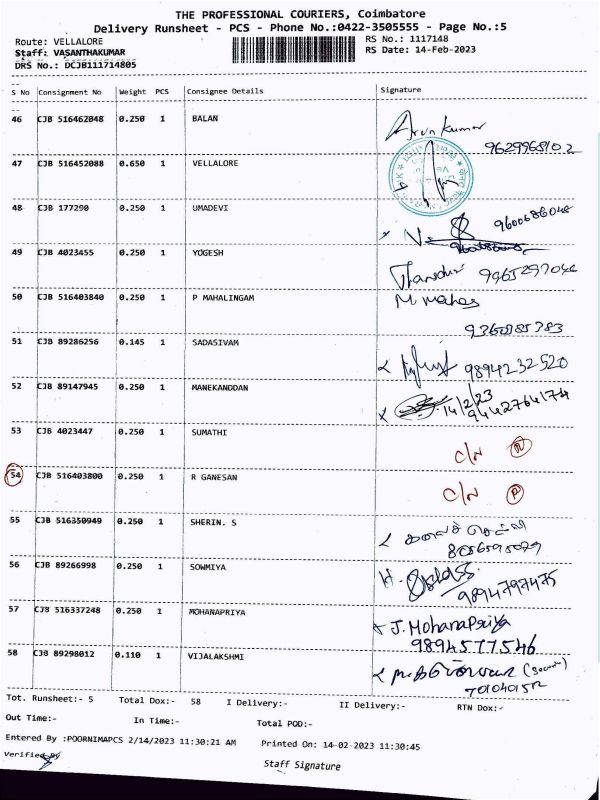 THE PROFESSIONAL COURIERS, Coimbatore
Delivery Runsheet - PCS - Phone No.:0422-3505555 - Page No.:5
Route: VELLALORE RS No.: 1117148
Staff: VASANTHAKUMAR RS Date: 14-Feb-2023
DRS No.: DCJB111714805
S No Consignment No Weight PCS Consignee Details Signature
46 CJB 516462048 0.250 1 BALAN Arun kumar
9629968102
47 CJB 516452088 0.650 1 VELLALORE
48 CJB 177290 0.250 1 UMADEVI 9600686048
49 CJB 4023455 0.250 1 YOGESH 9965297046
50 CJB 516403840 0.250 1 P MAHALINGAM M mahas
9360885783
51 CJB 89286256 0.145 1 SADASIVAM 9894232520
52 CJB 89147945 0.250 1 MANEKANDDAN 14/2/23
9442764174
53 CJB 4023447 0.250 1 SUMATHI C/N
54 CJB 516403800 0.250 1 R GANESAN C/N
55 CJB 516350949 0.250 1 SHERIN. S கலைச் செல்வி
56 CJB 89266998 0.250 1 SOWMIYA
9894797475
57 CJB 516337248 0.250 1 MOHANAPRIYA J. MohanaPriya
9894577546
58 CJB 89298012 0.110 1 VIJALAKSHMI
Tot. Runsheet:- 5 Total Dox:- 58 I Delivery:- II Delivery:- RTN Dox:-
Out Time:- In Time:- Total POD:-
Entered By :POORNIMAPCS 2/14/2023 11:30:21 AM Printed On: 14-02-2023 11:30:45
Verified By Staff Signature